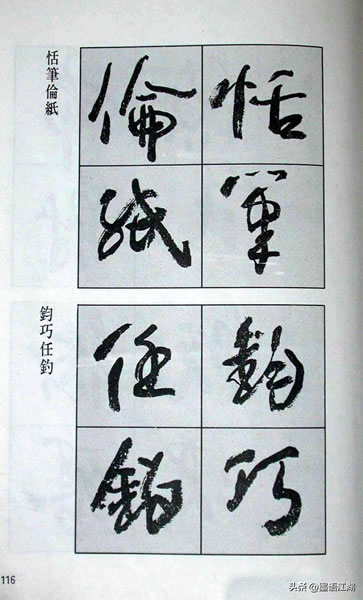 恬筆
倫紙
恬筆倫紙
鈞巧
任釣
鈞巧任釣
116
头条 @墨语江湖